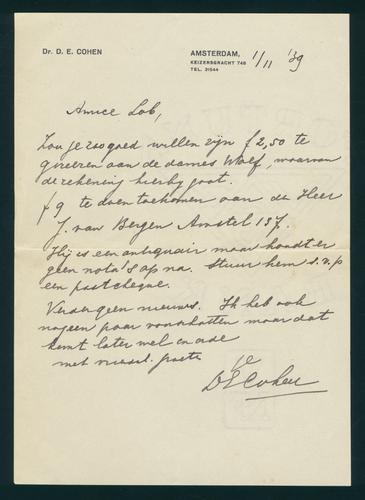 Dr. D. E. COHEN
AMSTERDAM, 1/11 '39
KEIZERSGRACHT 746
TEL. 31544
Amice Lob,
Zou je zoo goed willen zijn f 2,50 te
gireeren aan de dames Wolf, waarvan
de rekening hierbij gaat.
f 9 te doen toekomen aan de Heer
J. van Bergen Amstel 137.
Hij is een antiquair maar houdt er
geen nota's op na. Stuur hem s.v.p
een postcheque.
Verder geen nieuws. Ik heb ook
nog een paar voorschotten maar dat
komt later wel in orde
met vriendl. groete
DECohen